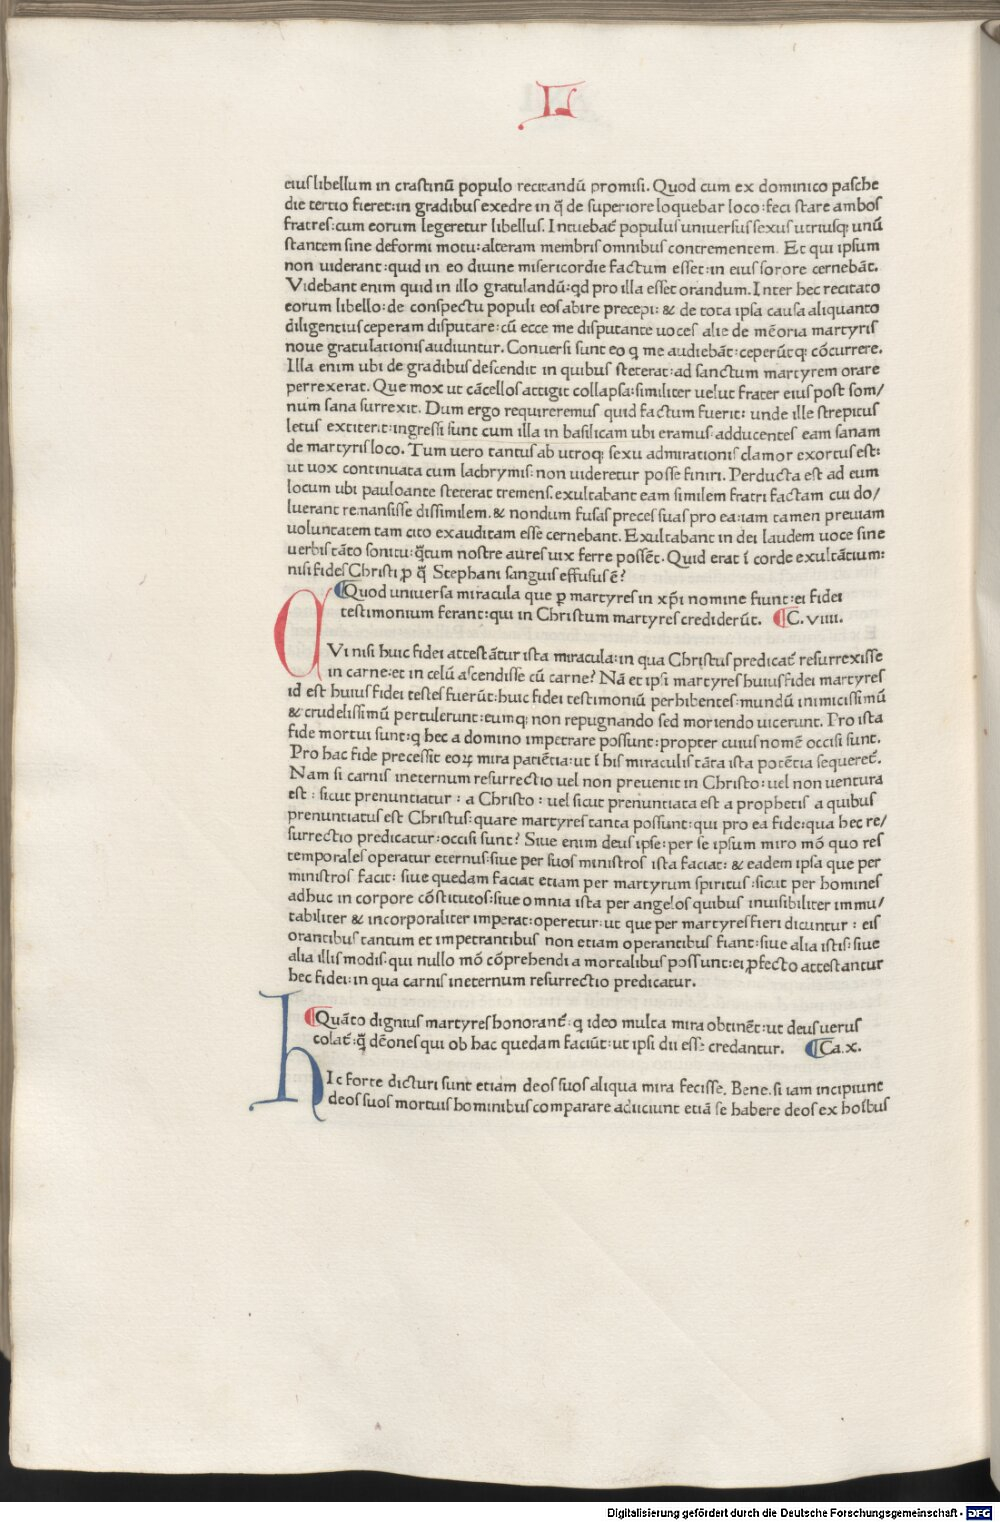 L
eius libellum in crastinū populo recitandū promisi. Quod cum ex dominico pasche
die tertio fieret: in gradibus exedre in q̄ de superiore loquebar loco: feci stare ambos
fratres: cum eorum legeretur libellus. Intuebat̄ populus universus sexus utriusq; unū
stantem sine deformi motu: alteram membris omnibus contrementem. Et qui ipsum
non uiderant: quid in eo diuine misericordie factum esset: in eius sorore cernebāt.
Videbant enim quid in illo gratulandū: qd pro illa esset orandum. Inter hec recitato
eorum libello: de conspectu populi eos abire precepi: & de tota ipsa causa aliquanto
diligentius ceperam disputare: cū ecce me disputante uoces alie de mēoria martyris
noue gratulationis audiuntur. Conuersi sunt eo q me audiebāt: ceperūtq; cōcurrere.
Illa enim ubi de gradibus descendit in quibus steterat: ad sanctum martyrem orare
perrexerat. Que mox ut cācellos attigit collapsa: similiter uelut frater eius post som/
num sana surrexit. Dum ergo requireremus quid factum fuerit: unde ille strepitus
letus extiterit: ingressi sunt cum illa in basilicam ubi eramus: adducentes eam sanam
de martyris loco. Tum uero tantus ab utroq; sexu admirationis clamor exortus est:
ut uox continuata cum lachrymis: non uideretur posse finiri. Perducta est ad eum
locum ubi pauloante steterat tremens. exultabant eam similem fratri factam cui do/
luerant remansisse dissimilem. & nondum fusas preces suas pro ea: iam tamen preuiam
uoluntatem tam cito exauditam esse cernebant. Exultabant in dei laudem uoce sine
uerbis tāto sonitu: q̄tum nostre aures uix ferre possēt. Quid erat ī corde exultātium:
nisi fides Christi ꝓ q̄ Stephani sanguis effusus ē?
Quod uniuersa miracula que ꝑ martyres in xp̄i nomine fiunt: ei fidei
testimonium ferant: qui in Christum martyres crediderūt. C. viiii.
CVi nisi huic fidei attestātur ista miracula: in qua Christus predicat̄ resurrexisse
in carne: et in celū ascendisse cū carne? Nā et ipsi martyres huius fidei martyres
id est huius fidei testes fuerūt: huic fidei testimoniū perhibentes: mundū inimicissimū
& crudelissimū pertulerunt: eumq; non repugnando sed moriendo uicerunt. Pro ista
fide mortui sunt: q hec a domino impetrare possunt: propter cuius nomē occisi sunt.
Pro hac fide precessit eoꝝ mira patiētia: ut ī his miraculis tāta ista potētia sequeret̄.
Nam si carnis ineternum resurrectio uel non preuenit in Christo: uel non uentura
est: sicut prenunciatur: a Christo: uel sicut prenunciata est a prophetis a quibus
prenunciatus est Christus: quare martyres tanta possunt: qui pro ea fide: qua hec re/
surrectio predicatur: occisi sunt? Siue enim deus ipse: per se ipsum miro mō quo res
temporales operatur eternus: siue per suos ministros ista faciat: & eadem ipsa que per
ministros facit: siue quedam faciat etiam per martyrum spiritus: sicut per homines
adhuc in corpore cōstitutos: siue omnia ista per angelos quibus inuisibiliter immu/
tabiliter & incorporaliter imperat: operetur: ut que per martyres fieri dicuntur: eis
orantibus tantum et impetrantibus non etiam operantibus fiant: siue alia istis: siue
alia illis modis: qui nullo mō cōprehendi a mortalibus possunt: ei ꝓfecto attestantur
hec fidei: in qua carnis ineternum resurrectio predicatur.
Quāto dignius martyres honorant̄: q ideo multa mira obtinēt: ut deus uerus
colat̄: q̄ dēones qui ob hac quedam faciūt: ut ipsi dii esse credantur. Ca. x.
hIc forte dicturi sunt etiam deos suos aliqua mira fecisse. Bene. si iam incipiunt
deos suos mortuis hominibus comparare adiiciunt etiā se habere deos ex hoībus
Digitalisierung gefördert durch die Deutsche Forschungsgemeinschaft - DFG